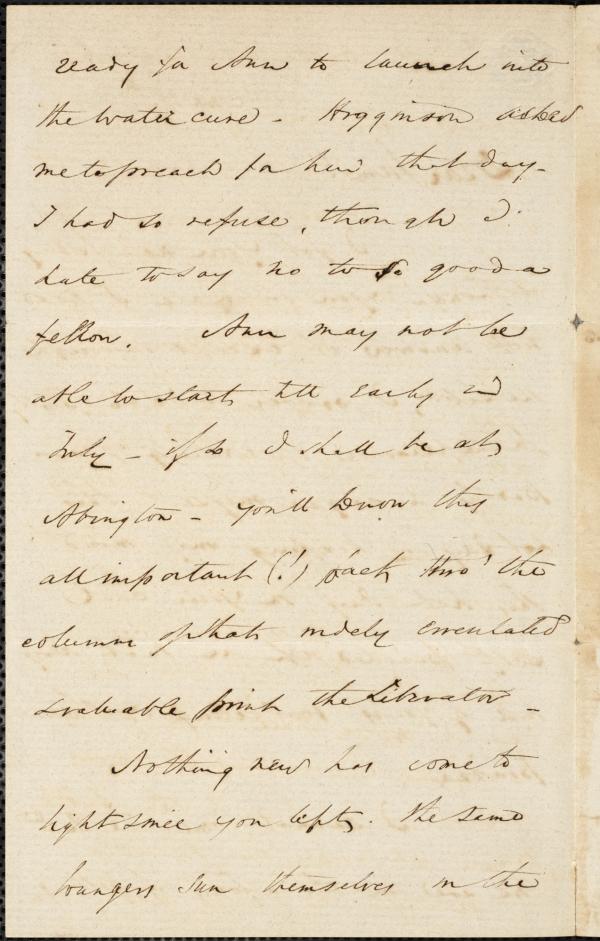 ready for Ann to launch into
the water cure - Higginson asked
me to preach for him that day -
I had to refuse, though I
hate to say no to so good a
fellow. Ann may not be
able to start till early in
July - if so I shall be at
Abington - you'll know this
all important (!) fact thro' the
columns of that widely circulated
& valuable print the Liberator -
Nothing new has come to
light since you left. The same
loungers sun themselves on the